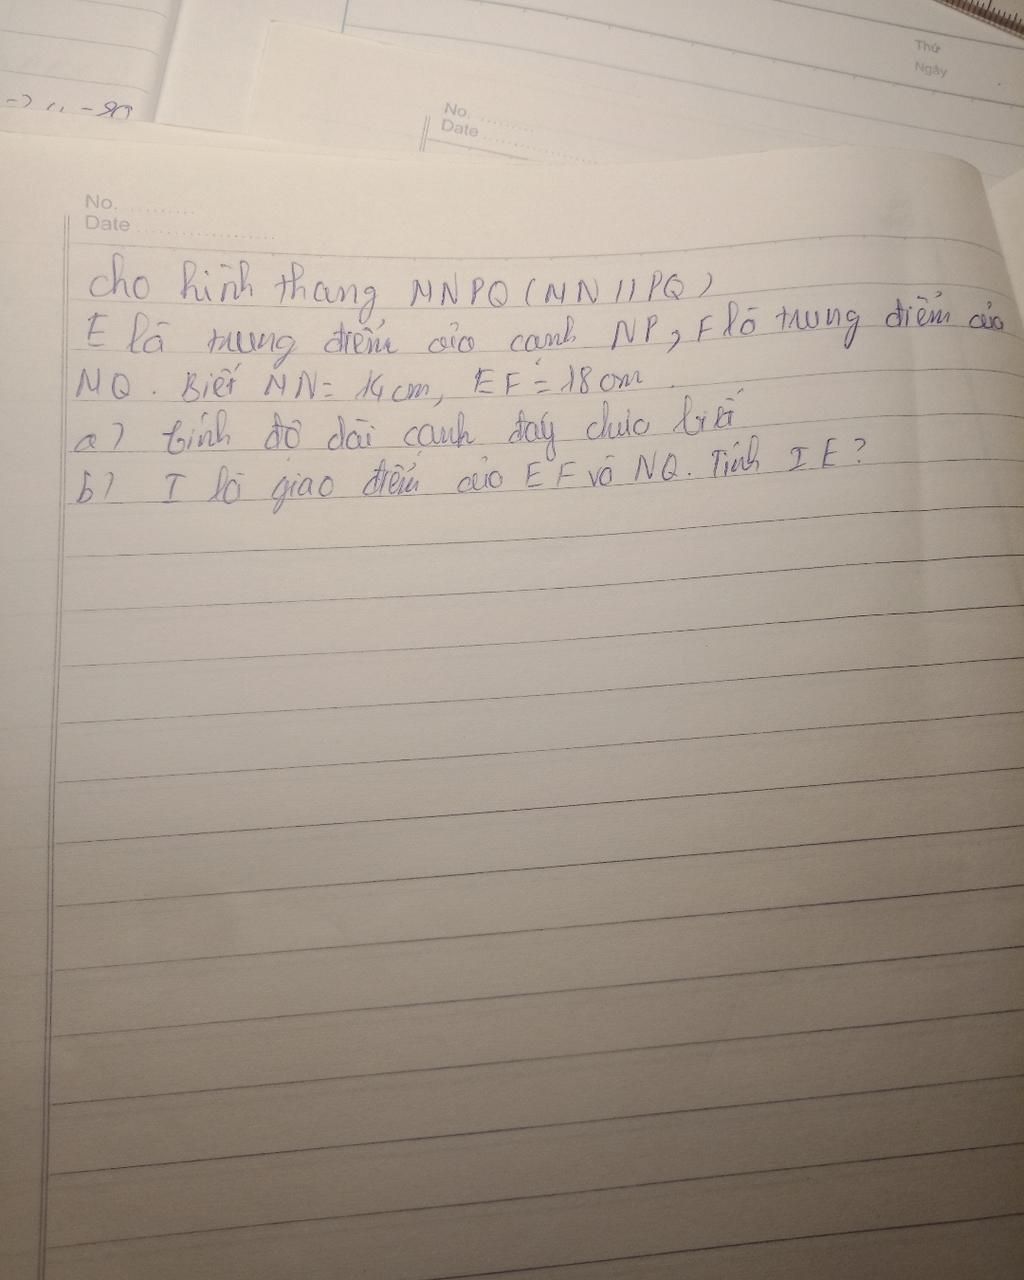 Thứ
Ngày
No.
Date
No.
Date
cho hình thang MNPQ (MN // PQ)
E là trung điểm của cạnh NP, F là trung điểm của
MQ. Biết MN = 14 cm, EF = 18 cm.
a) tính độ dài cạnh đáy chưa biết
b) I là giao điểm của EF và NQ. Tính IE?